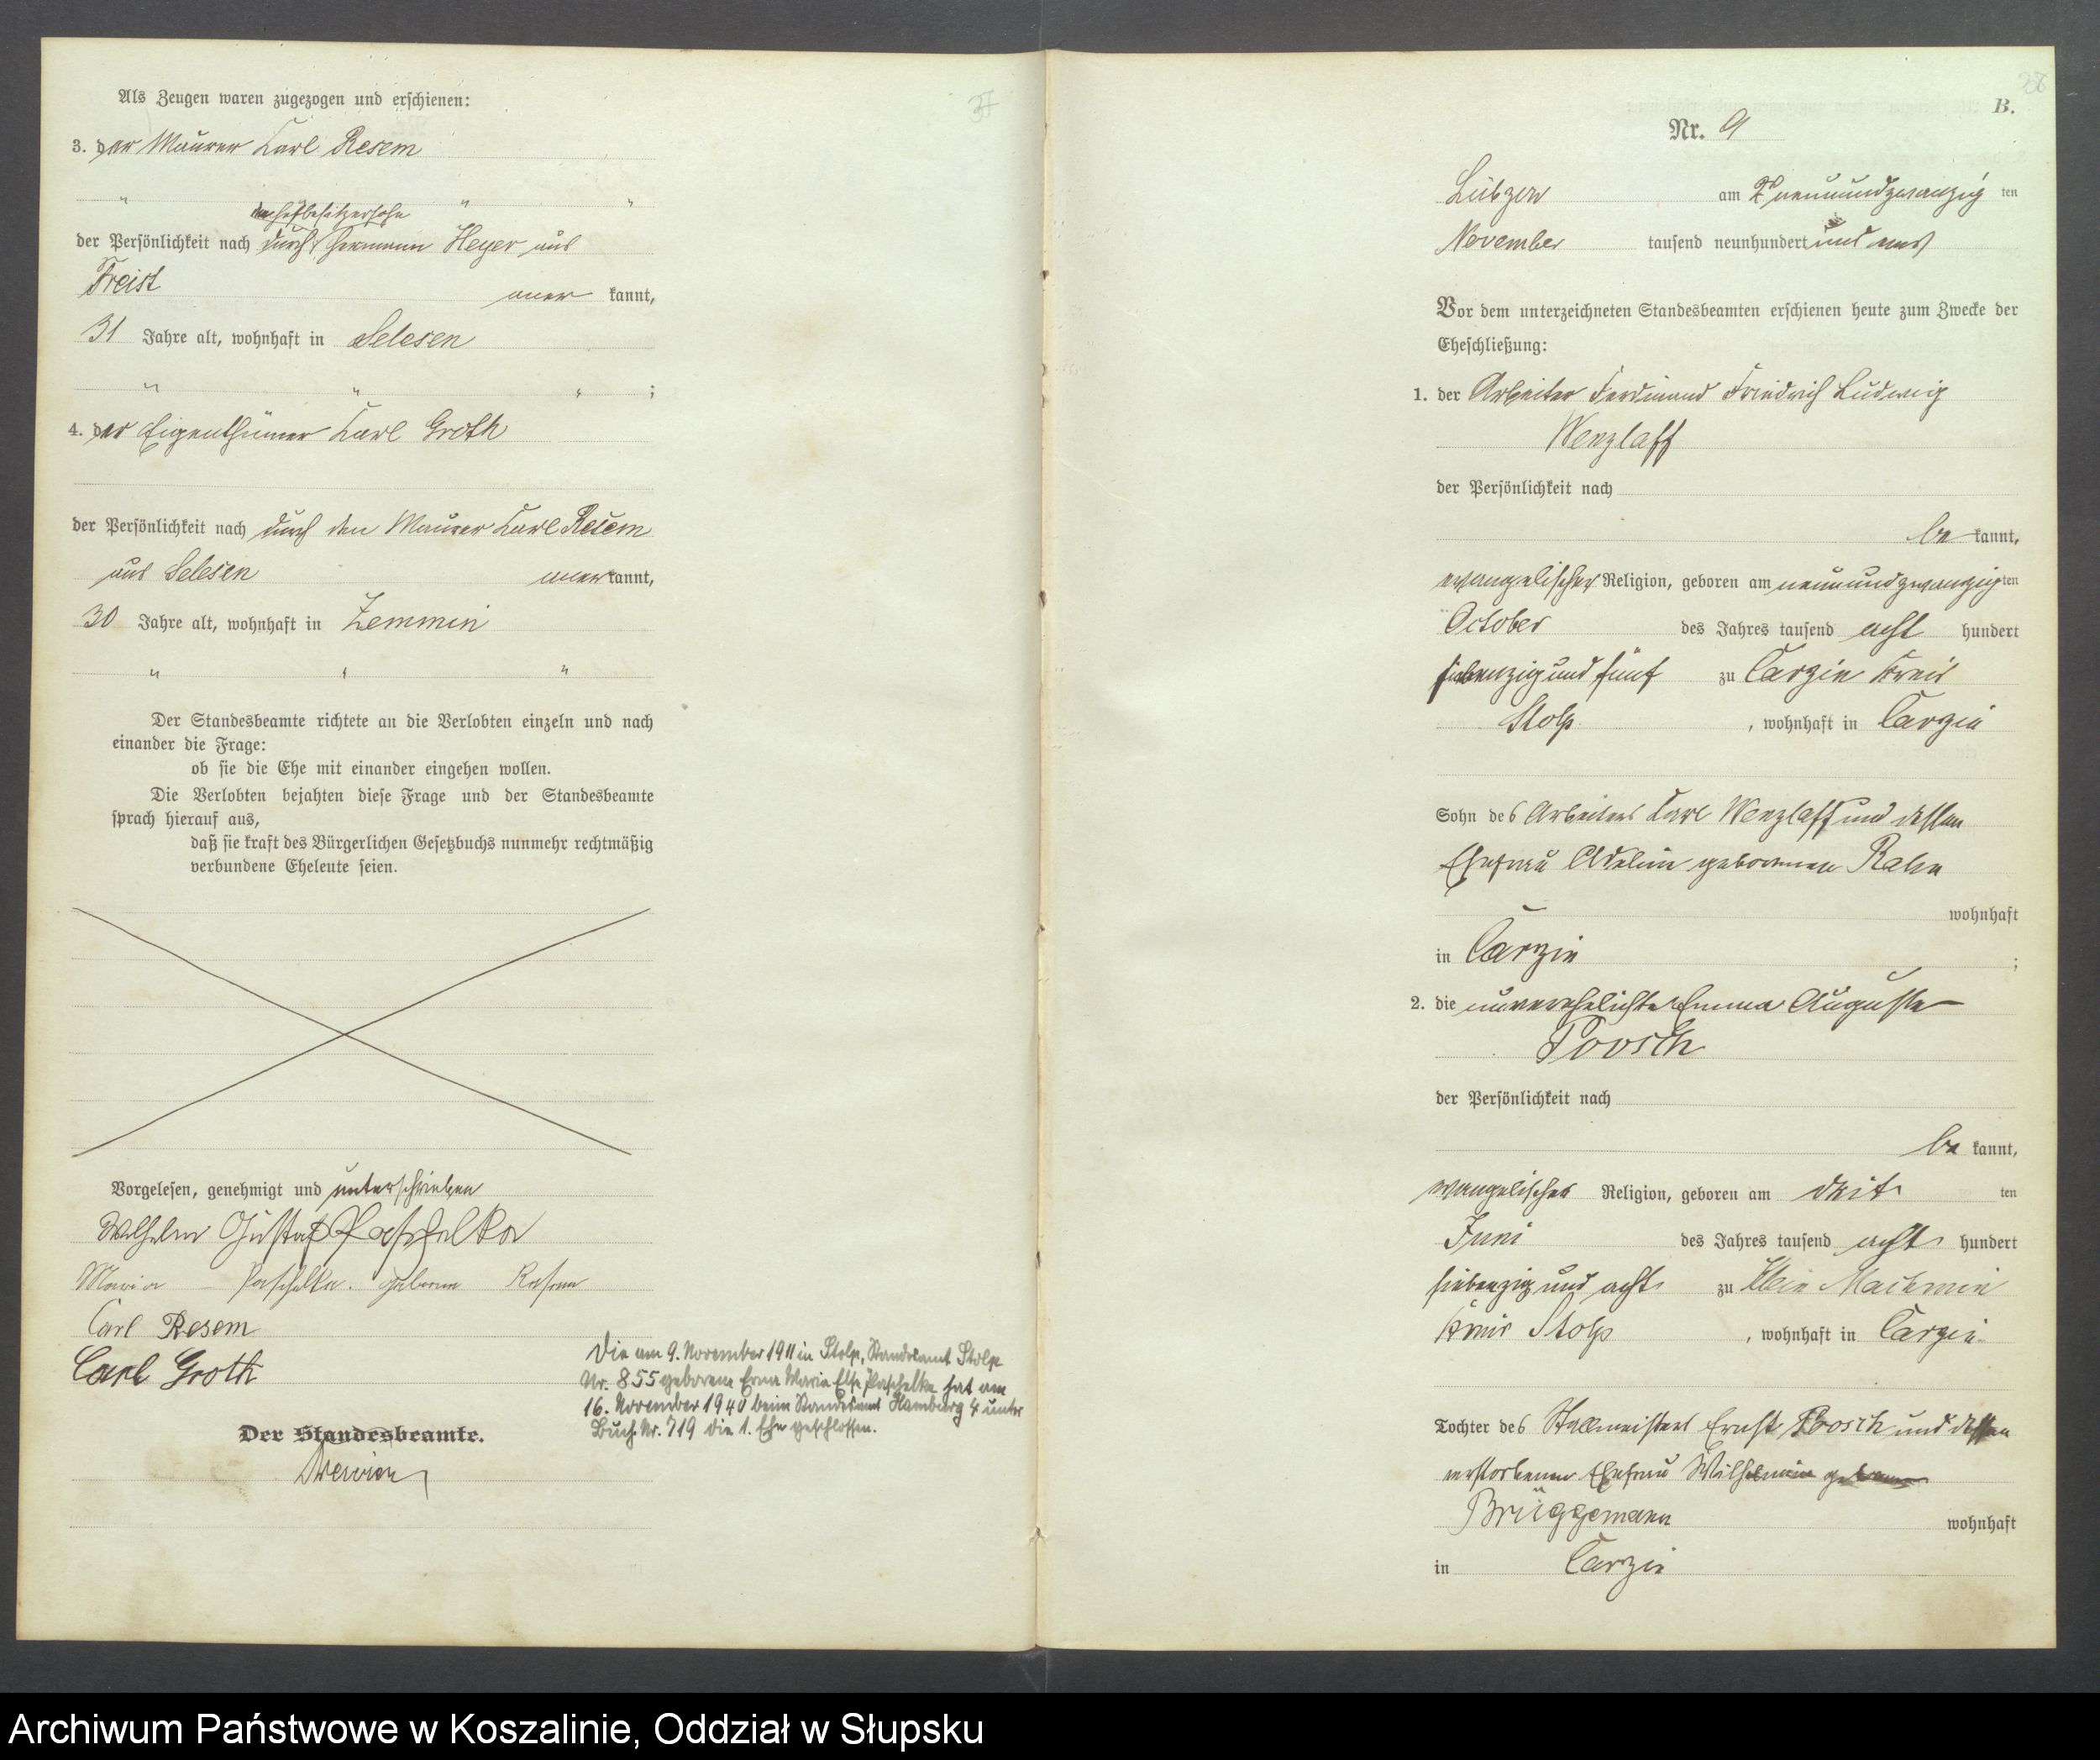 Als Zeugen waren zugezogen und erschienen:
3. der Maurer Karl Resem
" " "
hofbesitzersohn
der Persönlichkeit nach durch Hermann Heyer aus
Freist aner kannt,
31 Jahre alt, wohnhaft in Selesen
" " " ;
4. der Eigenthümer Karl Groth
der Persönlichkeit nach durch den Maurer Karl Resem
aus Selesen anerkannt,
30 Jahre alt, wohnhaft in Zemmin
" " "
Der Standesbeamte richtete an die Verlobten einzeln und nach
einander die Frage:
ob sie die Ehe mit einander eingehen wollen.
Die Verlobten bejahten diese Frage und der Standesbeamte
sprach hierauf aus,
daß sie kraft des Bürgerlichen Gesetzbuchs nunmehr rechtmäßig
verbundene Eheleute seien.
Vorgelesen, genehmigt und unterschrieben
Wilhelm Gustaf Paschelka
Maria Paschelka. geborene
Carl Resem
Carl Groth
Der Standesbeamte.
Die am 9. November 1911 in Stolp, Standesamt Stolp
Nr. 855 geborene Erna Maria Else Paschelka hat am
16. November 1940 beim Standesamt Hamburg 4 unter
Buch-Nr. 719 die 1. Ehe geschlossen.
37
B.
Nr. 9
Lübzow am neunundzwanzig ten
November tausend neunhundert und eins
Vor dem unterzeichneten Standesbeamten erschienen heute zum Zwecke der
Eheschließung:
1. der Arbeiter Ferdinand Friedrich Ludwig
Wenzlaff
der Persönlichkeit nach
be kannt,
evangelischer Religion, geboren am neunundzwanzigten
October des Jahres tausend acht hundert
siebenzig und fünf zu Carzin Kreis
Stolp , wohnhaft in Carzin
Sohn des Arbeiters Karl Wenzlaff und dessen
Ehefrau geborenen
wohnhaft
in Carzin ;
2. die unverehelichte Emma Auguste
Poosch
der Persönlichkeit nach
be kannt,
evangelischer Religion, geboren am dritt ten
Juni des Jahres tausend acht hundert
siebenzig und acht zu Klein Machmin
Kreis Stolp , wohnhaft in Carzin
Tochter des Stallmeisters Ernst Poosch und dessen
verstorbenen Ehefrau Wilhelmine
Brüggemann wohnhaft
in Carzin
Archiwum Państwowe w Koszalinie, Oddział w Słupsku